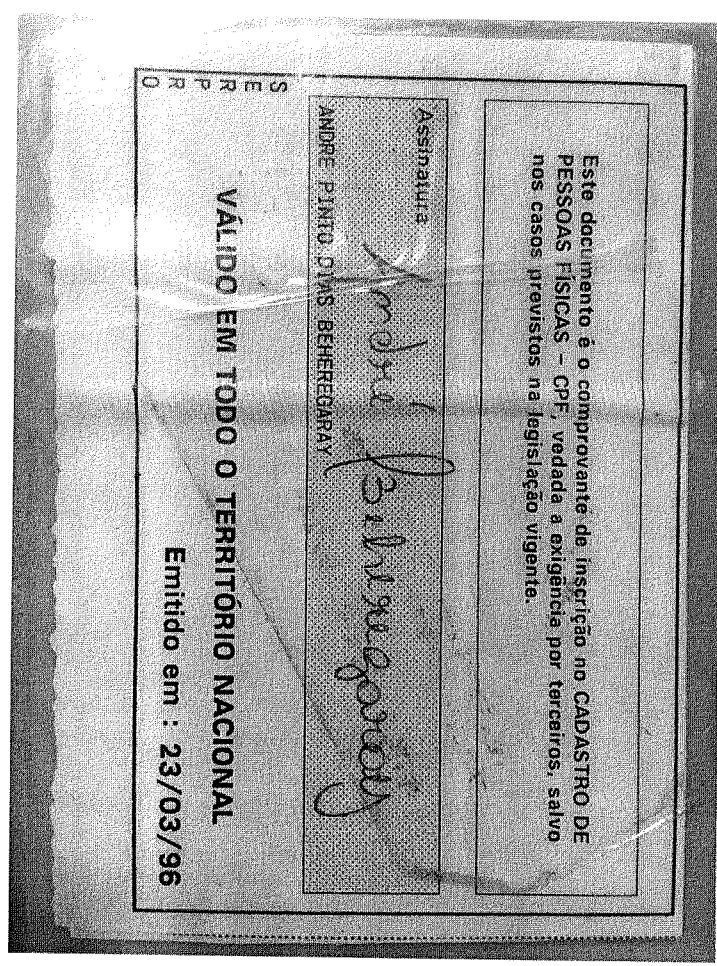 Este documento é o comprovante de inscrição no CADASTRO DE
PESSOAS FÍSICAS - CPF, vedada a exigência por terceiros, salvo
nos casos previstos na legislação vigente.
Assinatura
André Beheregaray
ANDRE PINTO DIAS BEHEREGARAY
SERPRO
VÁLIDO EM TODO O TERRITÓRIO NACIONAL
Emitido em : 23/03/96